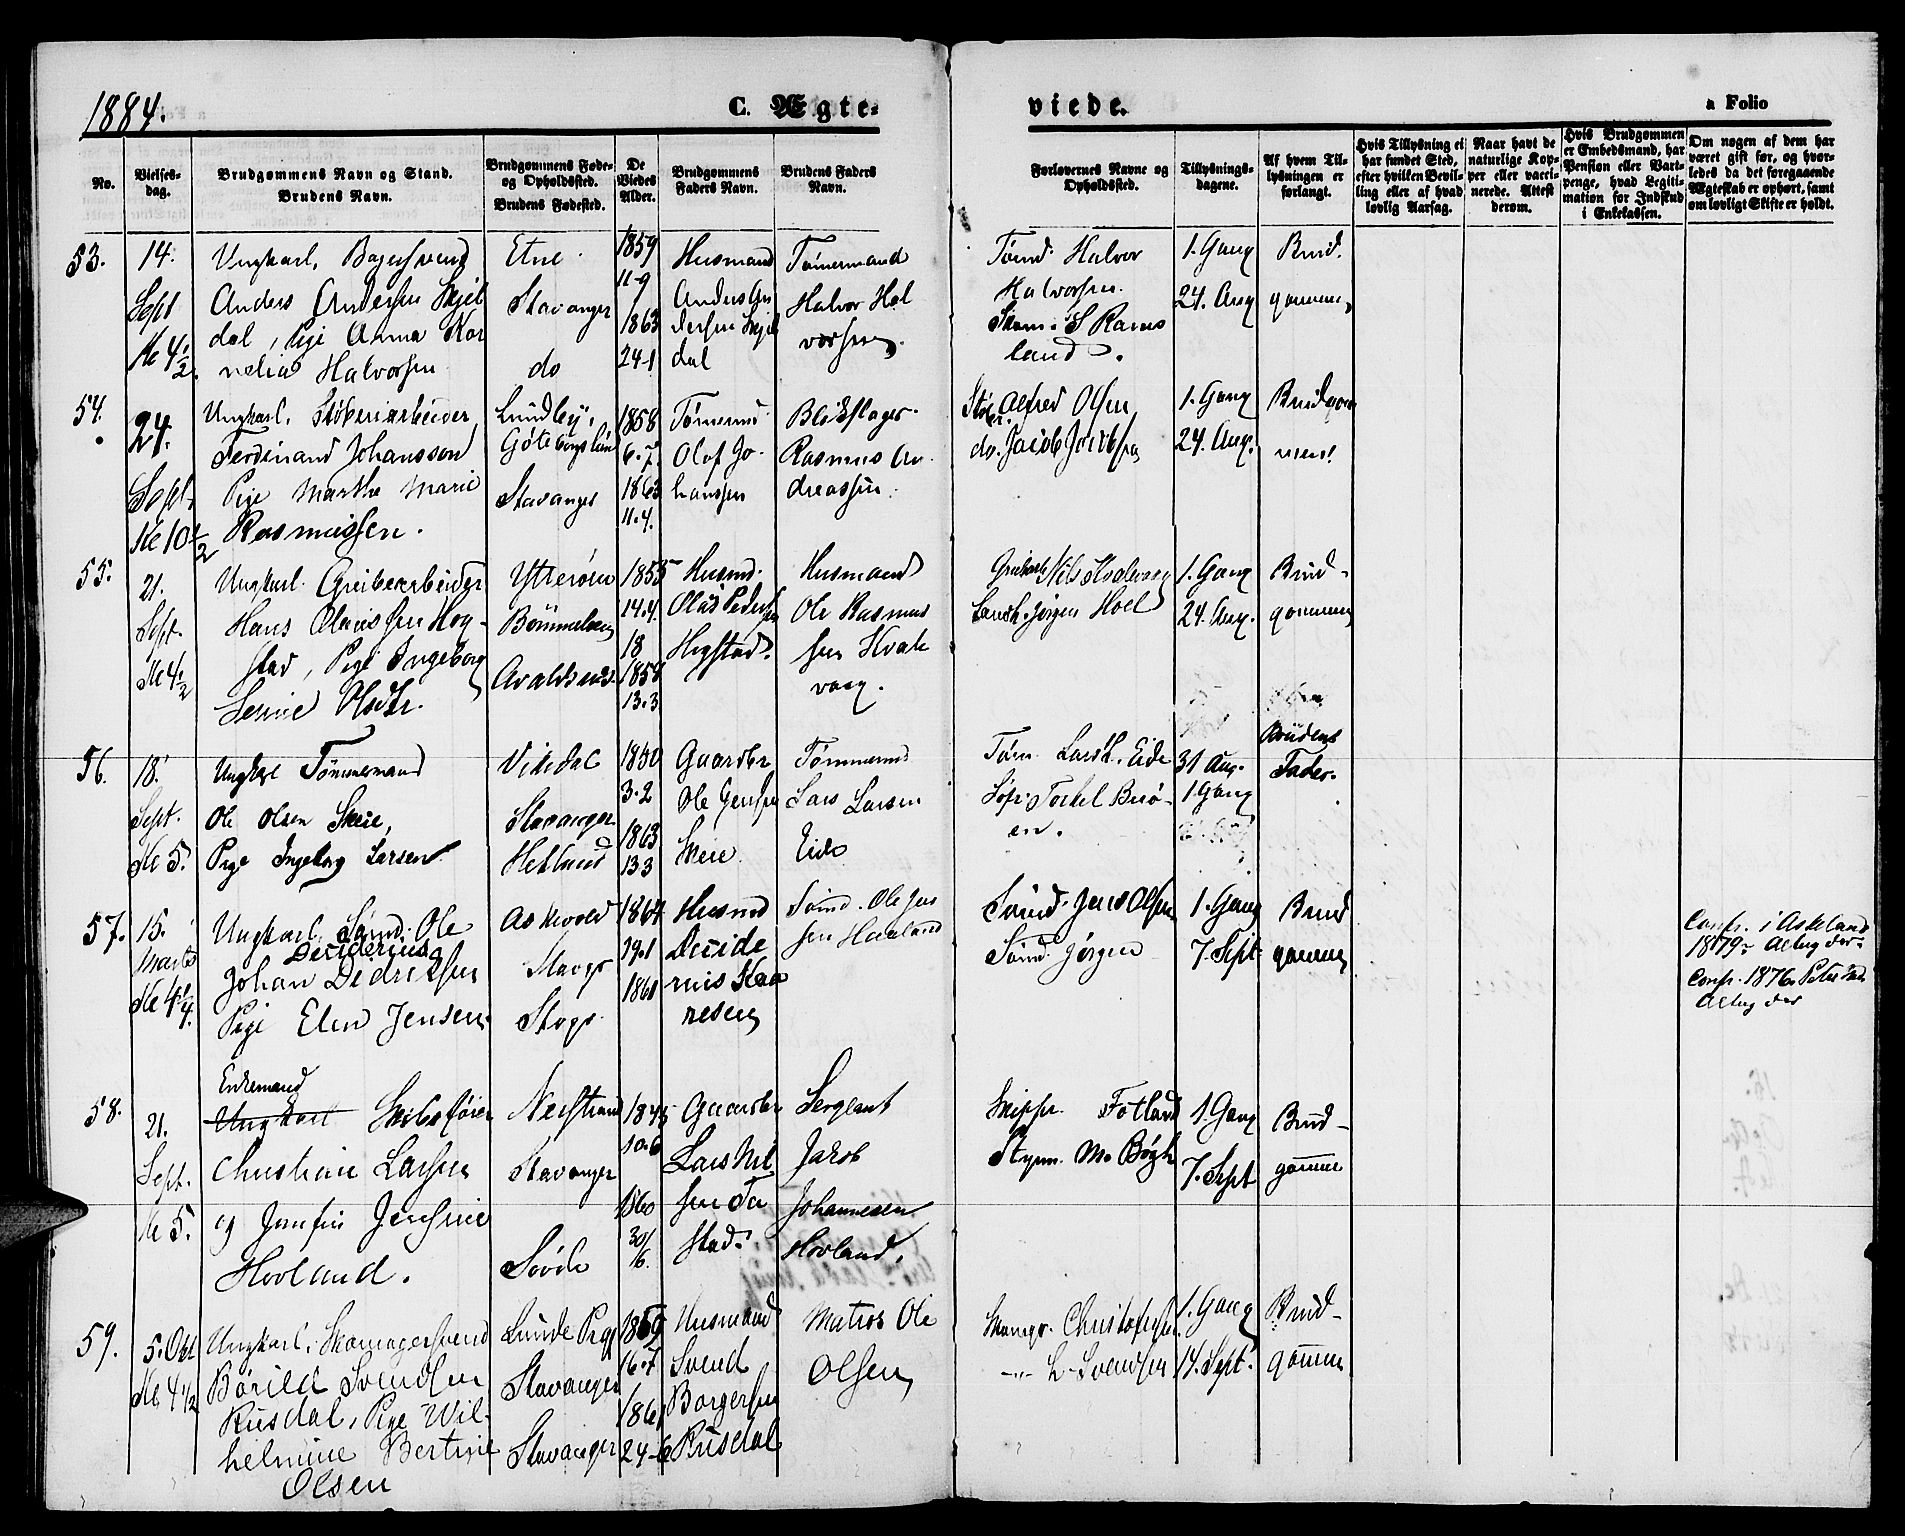 1884.
C. Ægte-
viede.
a Folio
No.
Vielses-
dag.
Brudgommens Navn og Stand.
Brudens Navn.
Brudgommens Føde-
og Opholdssted.
Brudens Fødested.
De
Viedes
Alder.
Brudgommens
Faders Navn.
Brudens Faders
Navn.
Forlovernes Navne og
Opholdssted.
Tillysnings-
dagene.
Af hvem Til-
lysningen er
forlangt.
Hvis Tillysning ei
har fundet Sted,
efter hvilken Bevil-
ling eller af hvad
lovlig Aarsag.
Naar havt de
naturlige Kop-
per eller vacci-
nerede. Attest
derom.
Hvis Brudgommen
er Embedsmand, har
Pension eller Vart-
penge, hvad Legiti-
mation for Indskud
i Enkekassen.
Om nogen af dem har
været gift før, og hvor-
ledes da det foregaaende
Ægteskab er ophørt, samt
om lovligt Skifte er holdt.
53.
14.
Sept
Kl 4 1/2.
Ungkarl, Bagersvend
Anders Andersen Skjel
dal, Pige Anna Kor
nelia Halvorsen
Etne
Stavanger
do
1859
11-9
1863
24-1
Husmand
Anders An
dersen Skjel
dal
Tømermand
Halvor Hal
vorsen.
Tømd. Halvor
Halvorsen.
Skom. S Rams
land.
1. Gang
24. Aug
Brud.
gommen
54.
24.
Sept.
Kl 10 1/2
Ungkarl, Støberiarbeider
Ferdinand Johansson
Pige Marthe Marie
Rasmussen.
Lundby,
Göteborgs län
Stavanger
1858
6-7.
1863
11.4.
Tømermd
Olof Jo-
hansson
Blikslager
Rasmus An
dreassen.
Støb. Alfred Olsen
do. Jacob Jacobsen
1. Gang
24. Aug.
Brudgom
men.
55.
21.
Sept.
Kl 4 1/2
Ungkarl. Grubearbeider
Hans Olaussen Hog-
stad, Pige Ingeborg
Serine Olsdtr.
Ytterøen
Bømmeløen
Avaldsnes
1855
14.4.
18
1858
13.3
Husmd.
Olas Pedersen
Hogstad.
Husmand
Ole Rasmus
sen Kvale
vaag.
Nils Kvalevaag
Jørgen Hoel
1. Gang
24. Aug.
Brud-
gommen
56.
18.
Sept.
Kl 5.
Ungkarl Tømmermand
Ole Olsen Skeie,
Pige Ingeborg Larsen
Vikedal
Stavanger
Hetland
1850
3.2
1863
13 3
Gaardbr
Ole Jensen
Skeie
Tømmermd
Lars Larsen
Eide
Tøm. Lars L. Eide
Torkel Buø-
en.
31 Aug.
1 Gang
Brudens
Fader.
57.
15.
Kl 4 1/4.
Ungkarl Sømd. Ole
Desiderius
Johan Dedriksen
Pige Elen Jensen
Askevold
Stavgr
Stvgr.
1864
19.1
1861
Husmd
Deside
rius Han
nesen
Sømd. Ole Jen
sen Haaland
Sømd. Jens Olsen
Sømd. Jørgen
1. Gang
7. Sept
Brud
gommen
Conf. i Askeland
1879.
Conf. 1876
58.
21.
Sept.
Kl 5.
Enkemand
Ungkarl Skibsfører
Christian Larsen
og Jomfru Jensine
Hovland.
Nerstrand
Stavanger
Søvde
1845
10.6
1860
30/6.
Gaardbr
Lars Nil
sen Tu
stad.
Sergeant
Jakob
Johannesen
Hovland,
Skippr. Fotland
Styrm. M. Bøgh
1. Gang
7. Sept
Brud-
gommen
59.
5. Okt
Kl. 4 1/2
Ungkarl, Skomagersvend
Børild Svendsen
Rusdal, Pige Wil-
helmine Bertine
Olsen
Lunde Prgj
Stavanger
Stavanger
16.7
1861
24-6
Husmand
Svend
Borgersen
Rusdal
Matros Ole
Olsen
Skomgr. Christofersen
-"- L. Svendsen
1. Gang
14. Sept.
Brud-
gommen